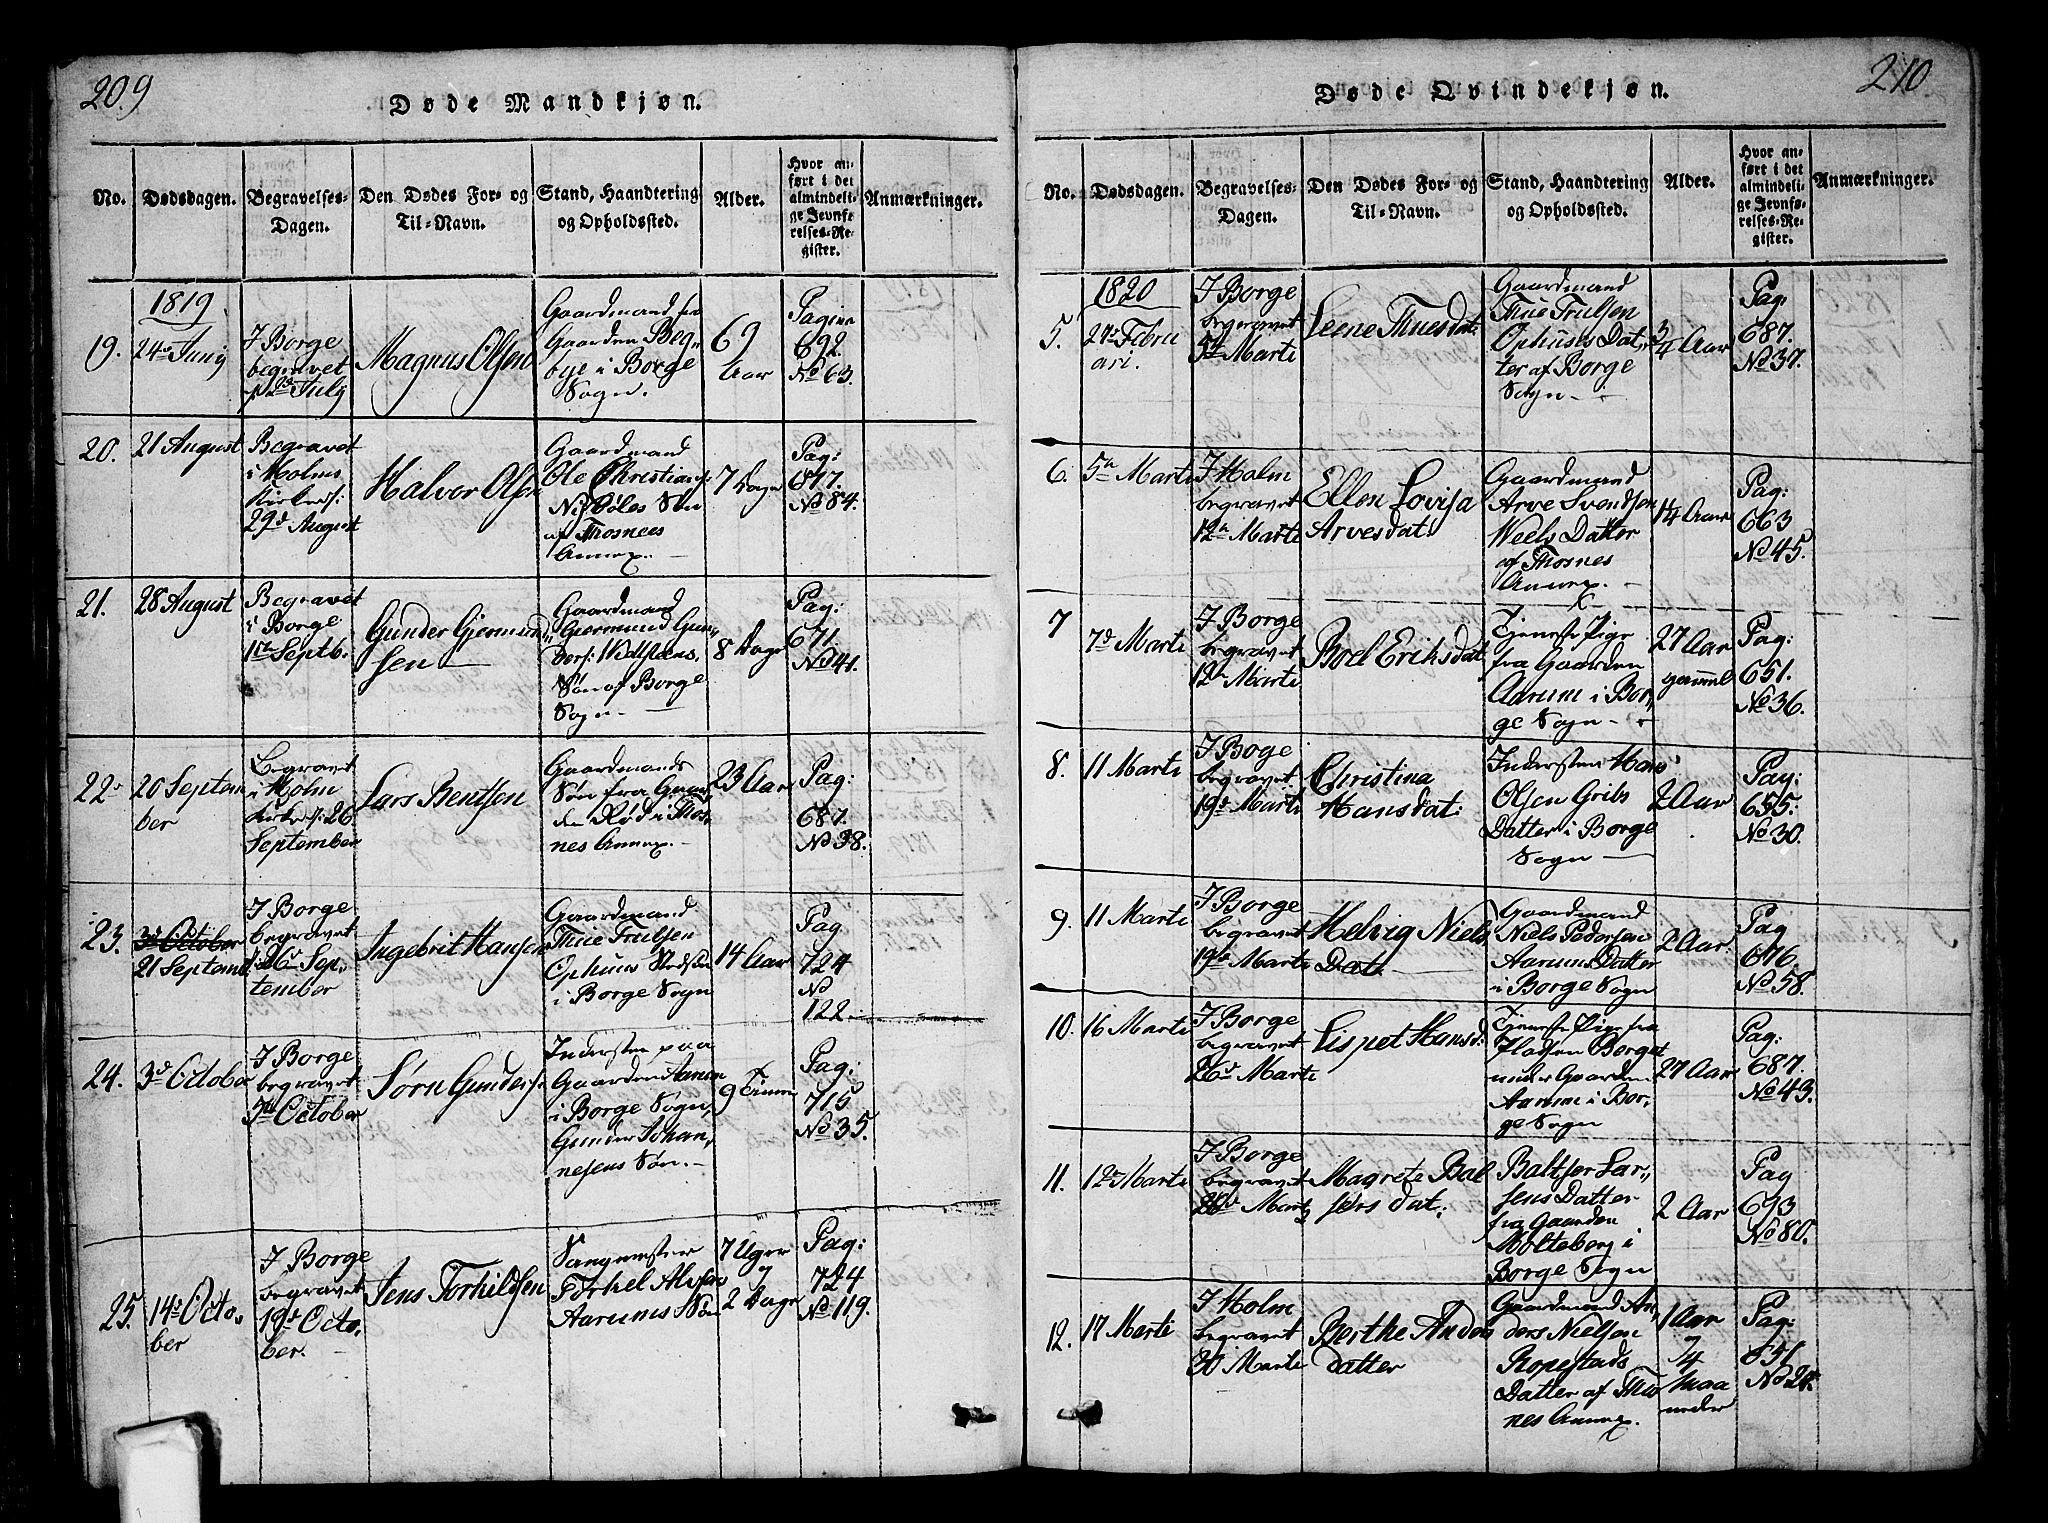 209
Døde Mandkjøn.
No.
Dødsdagen.
Begravelses-
Dagen.
Den Dødes For- og
Til-Navn.
Stand, Haandtering
og Opholdssted.
Alder.
Hvor an-
ført i det
almindeli-
ge Jevnfø-
relses-Re-
gister.
Anmærkninger.
19.
1819
24de Junij
I Borge
begravet
2de Julij
Magnus Olsen
Gaardmand fra
Gaarden Beg,
bye i Borge
Sogn.
69
Aar
Pagina
692.
No 63.
20.
21 August
Begravet
i Holms
Kirke
29de August
Halvor Olsen
Gaardmand
Ole Christian
Søn
af Thosnees
Annex.
7 Dage
Pag:
No 84.
21.
28 August
Begravet
i Borge
Septb.
Gunder Gjermund,,
sen
Gaardmand
Gjermund Gun,,
Søn af Borge
Sogn
8 Dage
Pag:
671.
No 41.
22.
20 Septem
ber
Begravet
i Holm
26
September
Lars Bentsen
Gaardmands
Søn fra Gaar,
den Rød i Thos,
nes Annex.
23 Aar
Pag:
687.
No 38.
23.
3de October
21 Septemb
I Borge
begravet
26de Sep,
tember
Ingebrit Hansen
Gaardmand
Thue Trulsen
Ophuus
i Borge Sogn
14 Aar
Pag
724
No
122
24.
3de October
I Borge
begravet
October
Sørn Gunders
Inderste paa
Gaarden Aarum
i Borge Sogn,
Gunder Johan,
nesens Søn.
9 Timer
Pag:
715
No 35.
25.
14de Octo,
ber
I Borge
begravet
19de Octo,
ber.
Jens Torkildsen
Sangmester
Torkel
Aarums Søn
7 Uger
og
2 Dage
Pag:
724
No 119.
210
Døde Qvindekjøn.
No.
Dødsdagen.
Begravelses-
Dagen.
Den Dødes For- og
Til-Navn.
Stand, Haandtering
og Opholdssted.
Alder.
Hvor an-
ført i det
almindeli-
ge Jevnfø-
relses-Re-
gister.
Anmærkninger.
5.
1820
Febru
ari.
I Borge
begravet
5te Marti
Leene Thuesdat.
Gaardmand
Thue Trulsen
Ophuses Dat,
ter af Borge
Sogn
3/4 Aar
Pag:
687.
No 37.
6.
5te Marti
I Holm
begravet
12te Marti
Ellen Lovisa
Arvesdat:
Gaardmand
Arve Svendsen
Weels Datter
af Thosnes
Annex.
14 Aar
Pag:
663
No 45.
7
7de Marti
I Borge
begravet
12te Marti
Boel Eriksdat
Tjeneste Pige
fra Gaarden
Aarum i Bor,,
ge Sogn
27 Aar
gammel
Pag:
651.
No 36.
8.
11 Marti
I Boge
begravet
19de Marti
Christina
Hansdat:
Inderste Hans
Olsen Gribs
Datter i Borge
Sogn
2 Aar
Pag:
655.
No 30.
9.
11 Marti
I Borge
begravet
19de Marti
Helvig Niels
Dat.
Gaardmand
Niels Pedersen
Aarums Datter
i Borge Sogn
2 Aar
Pag
676.
No 58.
10.
16 Marti
I Borge
begravet
26de Marti
Lispet Hansd:
Tjeneste Pige fra
Pladsen Berget
under Gaarden
Aarum i Bor,
ge Sogn
27 Aar
Pag:
687.
No 43.
11.
12te Marti
I Borge
begravet
Marti
Magrete Bal
sers dat:
Baltser Lar,,
sens Datter
fra Gaarden
Molteberg i
Borge Sogn
2 Aar
Pag
693
No 80.
12.
17 Marti
I Holm
begravet
30 Marti
Berthe Anders
datter
Gaardmand An,
ders Nielsen
Ropestads
Datter af Thos
nes Annex.
1 Aar
og 4
maa
neder
Pag:
651